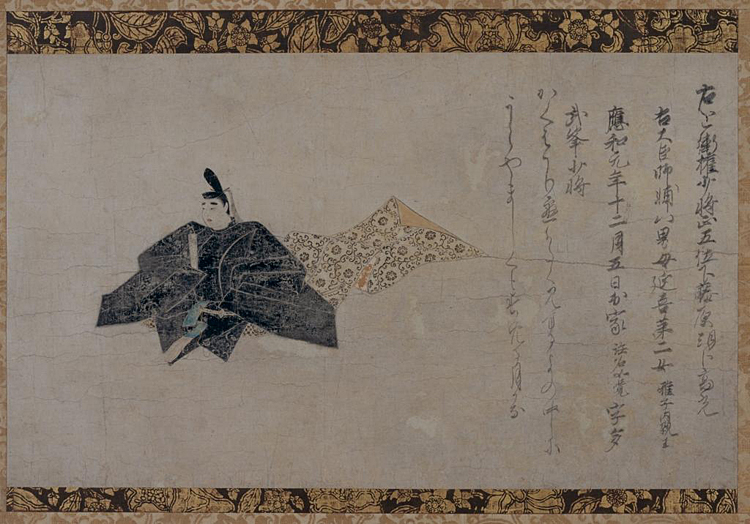 右近衛権少将正五位下藤原朝臣高光
右大臣師輔八男母延喜第二女 雅子内親王
應和元年十二月五日出家 法名如覚 字多
武峯少将
かくはかりへかたくみゆるよの中に
うらやましくもすめる月かな